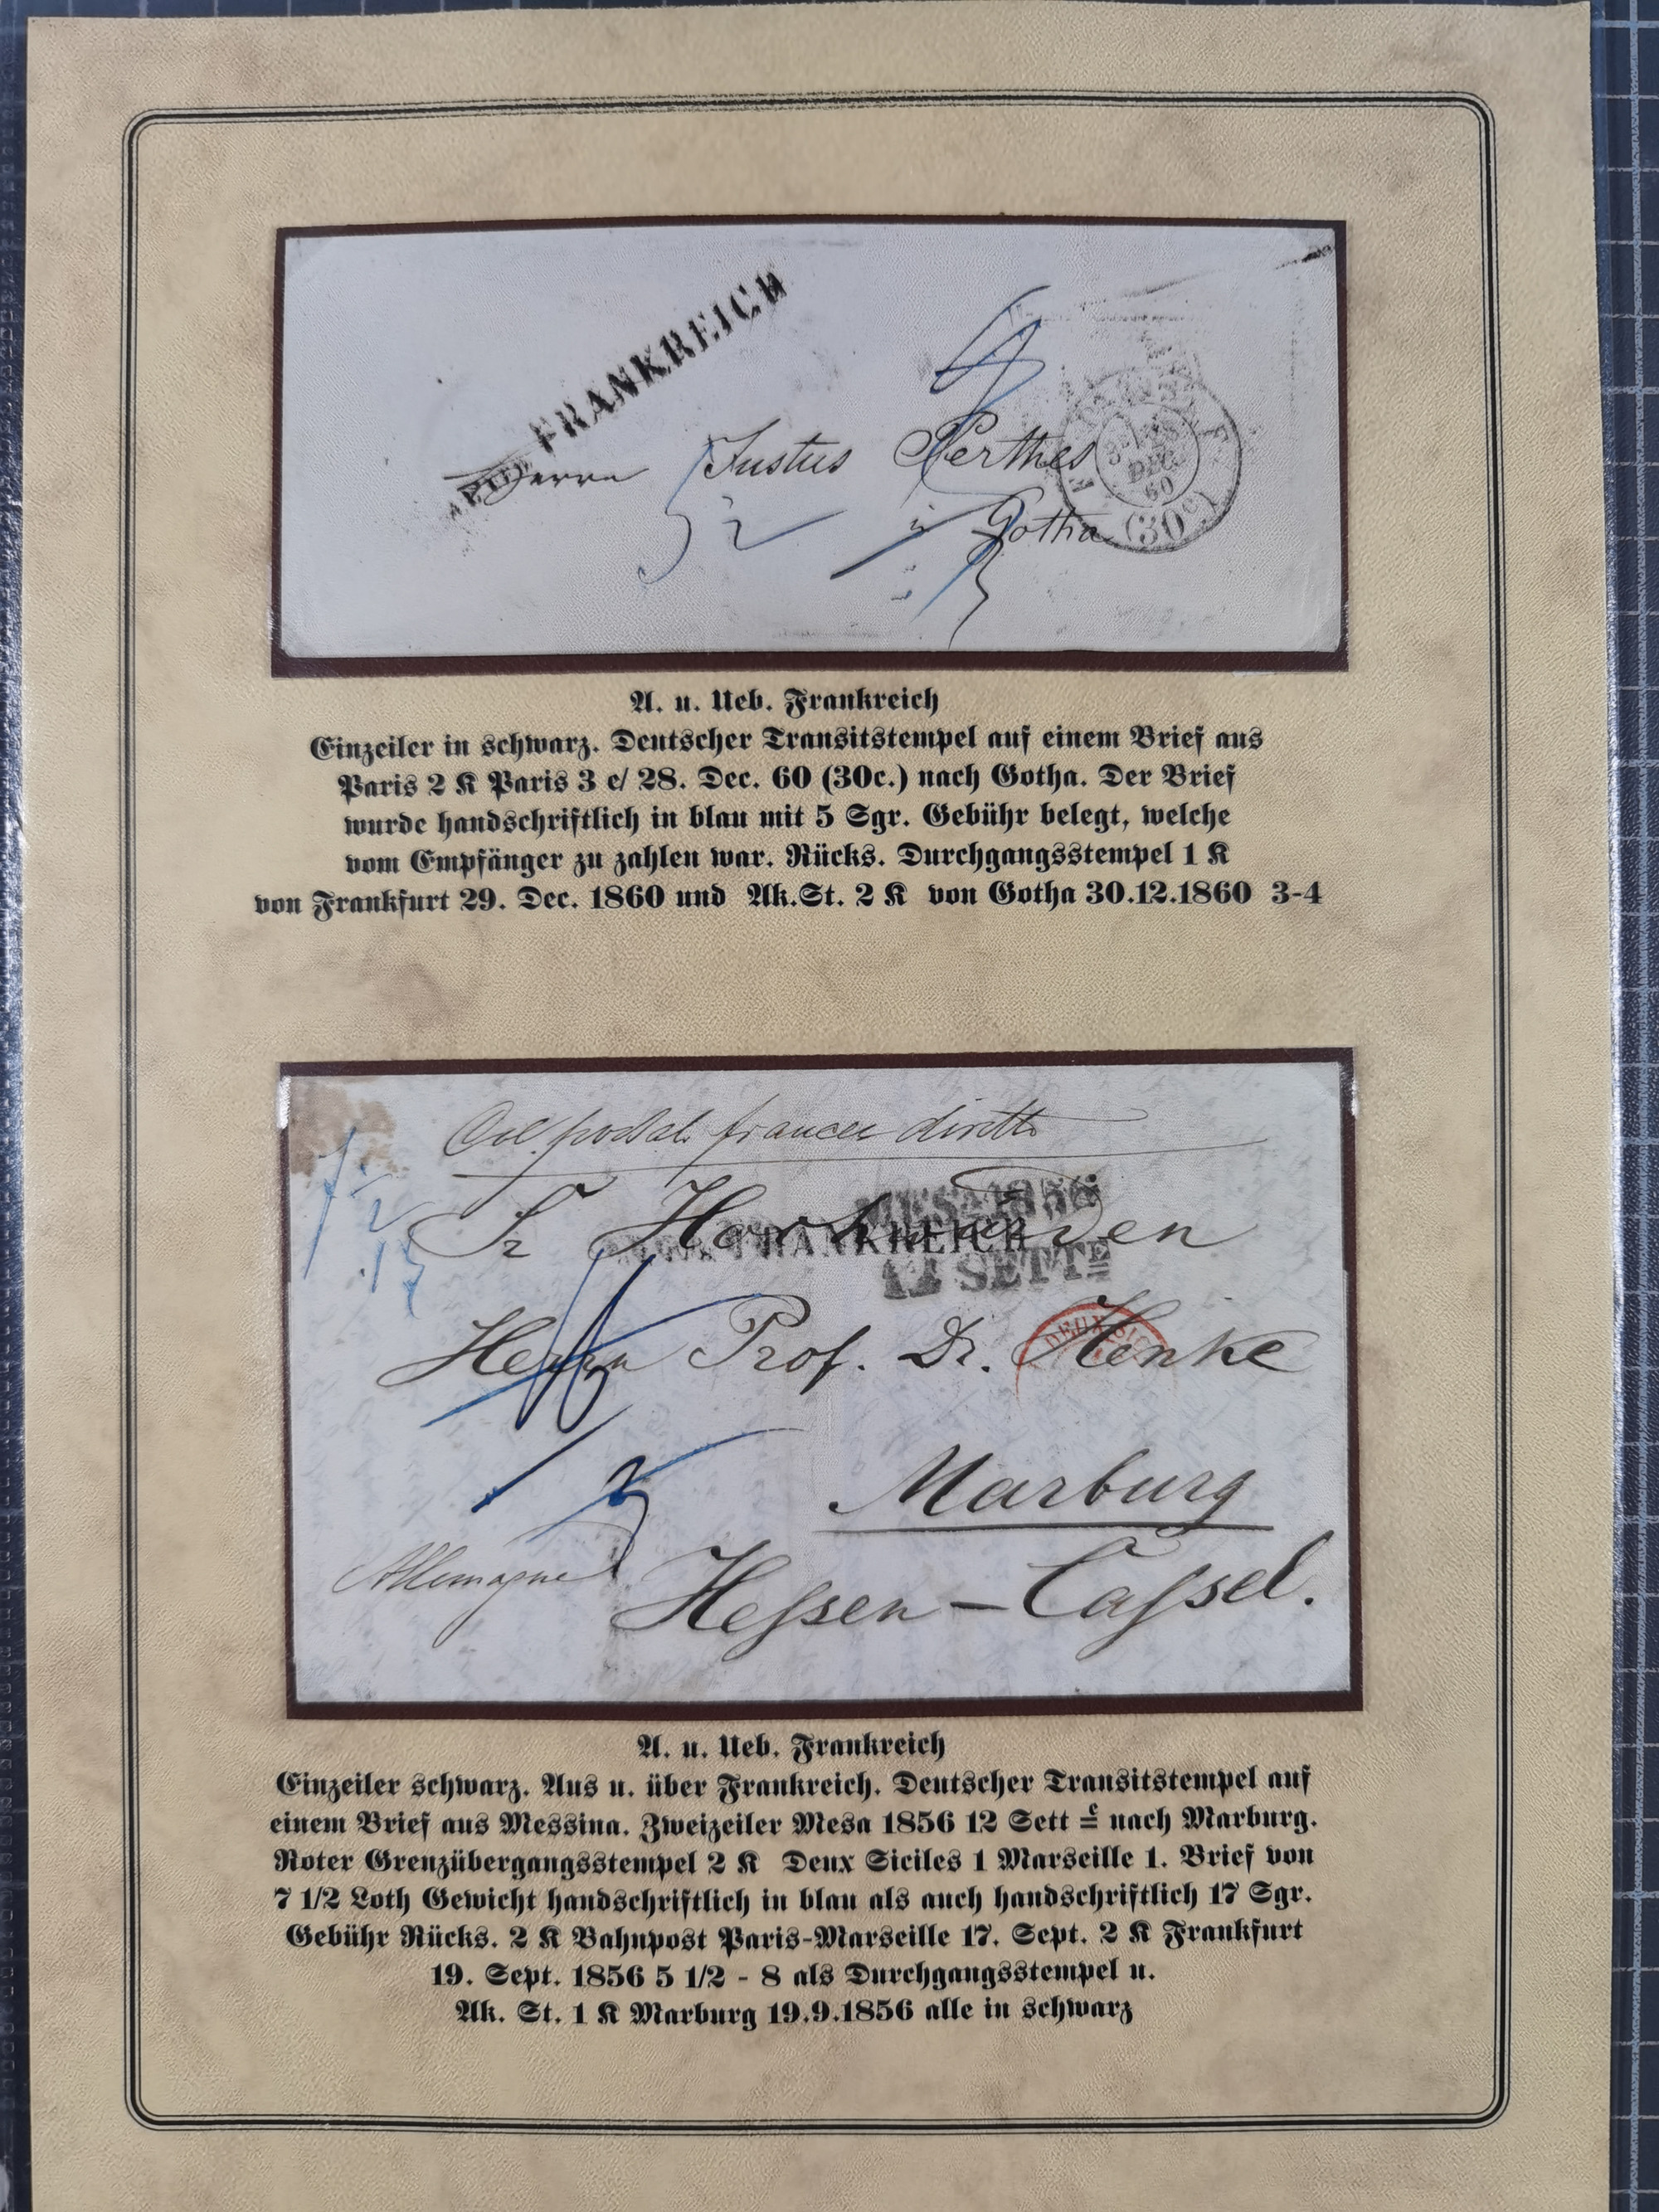 FRANKREICH
Herrn Justus Perthes
in Gotha
DEC.
60
(30c)
A. u. Ueb. Frankreich
Einzeiler in schwarz. Deutscher Transitstempel auf einem Brief aus
Paris 2 K Paris 3 e/ 28. Dec. 60 (30c.) nach Gotha. Der Brief
wurde handschriftlich in blau mit 5 Sgr. Gebühr belegt, welche
vom Empfänger zu zahlen war. Rücks. Durchgangsstempel 1 K
von Frankfurt 29. Dec. 1860 und Ak.St. 2 K von Gotha 30.12.1860 3-4
postal. diretto
Sr
MES.A 1856
FRANKREICH
12 SETTE
Herrn Prof. Dr. Henke
DEUX SIC
Marburg
Allemagne
Hessen-Cassel.
A. u. Ueb. Frankreich
Einzeiler schwarz. Aus u. über Frankreich. Deutscher Transitstempel auf
einem Brief aus Messina. Zweizeiler Mesa 1856 12 Sett e nach Marburg.
Roter Grenzübergangsstempel 2 K Deux Siciles 1 Marseille 1. Brief von
7 1/2 Loth Gewicht handschriftlich in blau als auch handschriftlich 17 Sgr.
Gebühr Rücks. 2 K Bahnpost Paris-Marseille 17. Sept. 2 K Frankfurt
19. Sept. 1856 5 1/2 - 8 als Durchgangsstempel u.
Ak. St. 1 K Marburg 19.9.1856 alle in schwarz